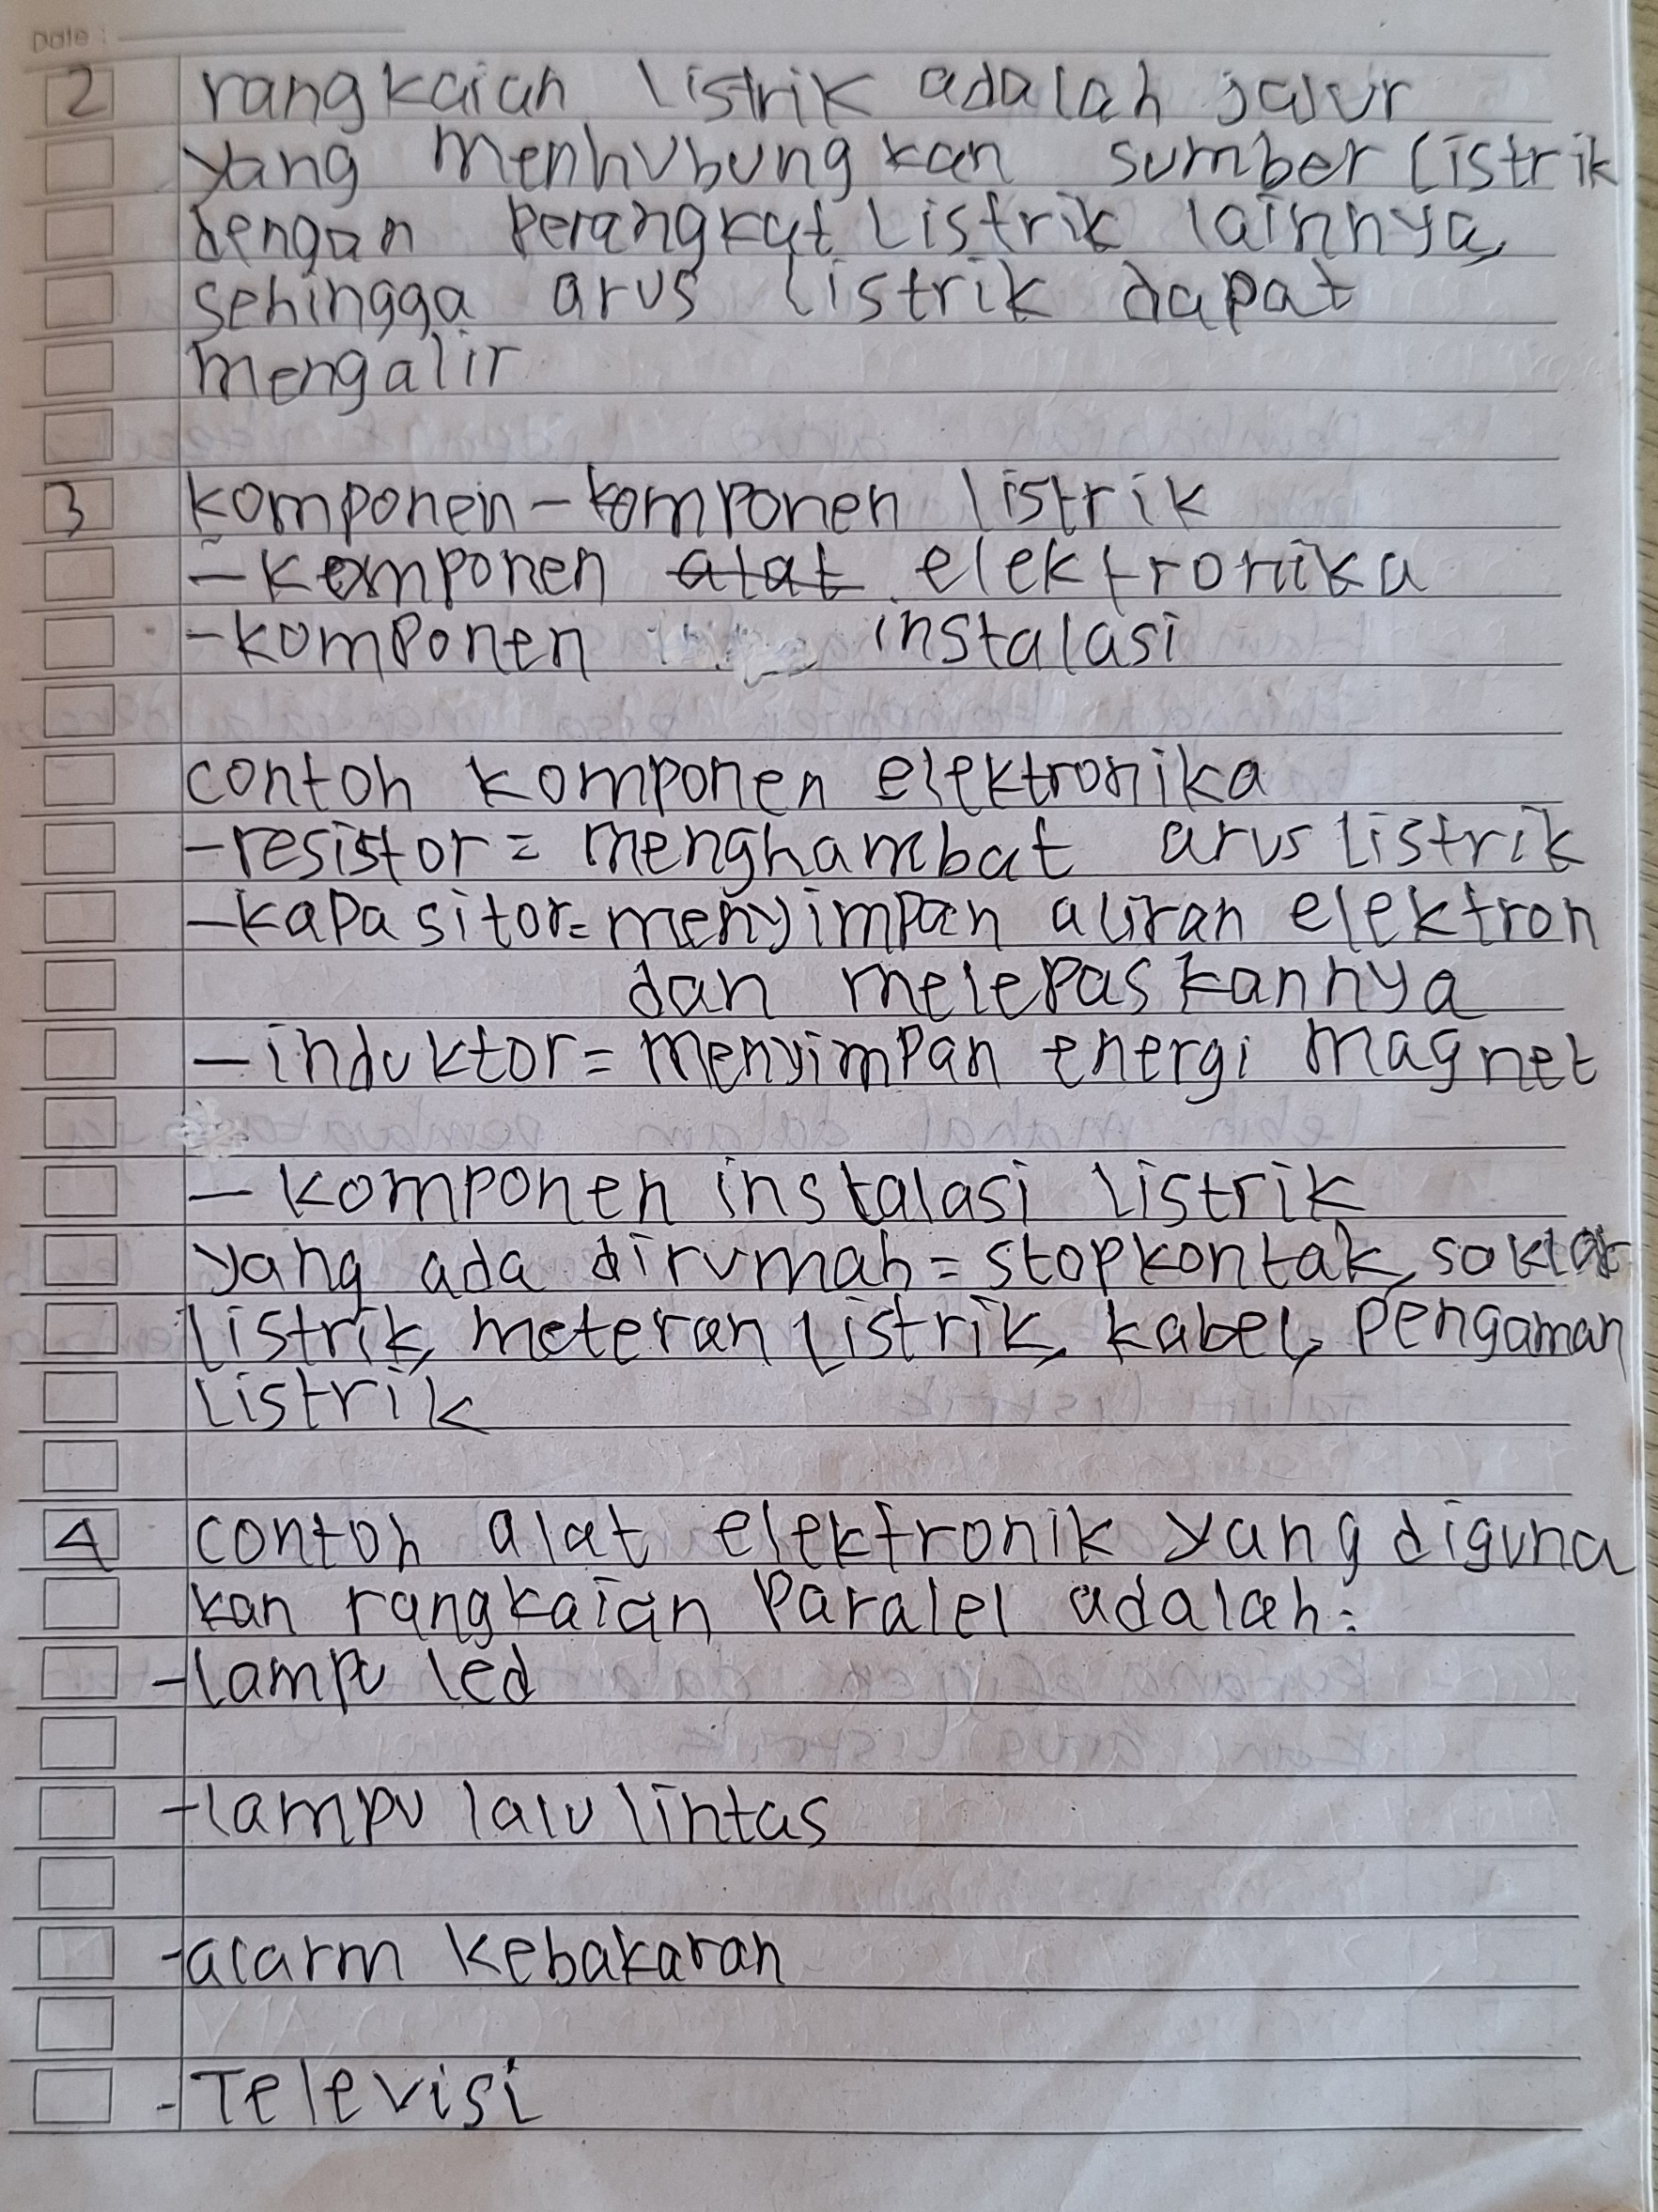 Date :
2 rangkaian listrik adalah jalur
yang menhubungkan sumber listrik
dengan perangkat listrik lainnya,
sehingga arus listrik dapat
mengalir
3 komponein-komponen listrik
- komponen alat elektronika
- komponen instalasi
contoh komponen elektronika
- resistor = menghambat arus listrik
- kapasitor = menyimpan aliran elektron
dan melepaskannya
- induktor = menyimpan energi magnet
- komponen instalasi listrik
yang ada dirumah = stopkontak, saklar
listrik, meteran listrik, kabel, pengaman
listrik
4 contoh alat elektronik yang diguna
kan rangkaian Paralel adalah:
- lampu led
- lampu lalu lintas
- alarm kebakaran
- Televisi